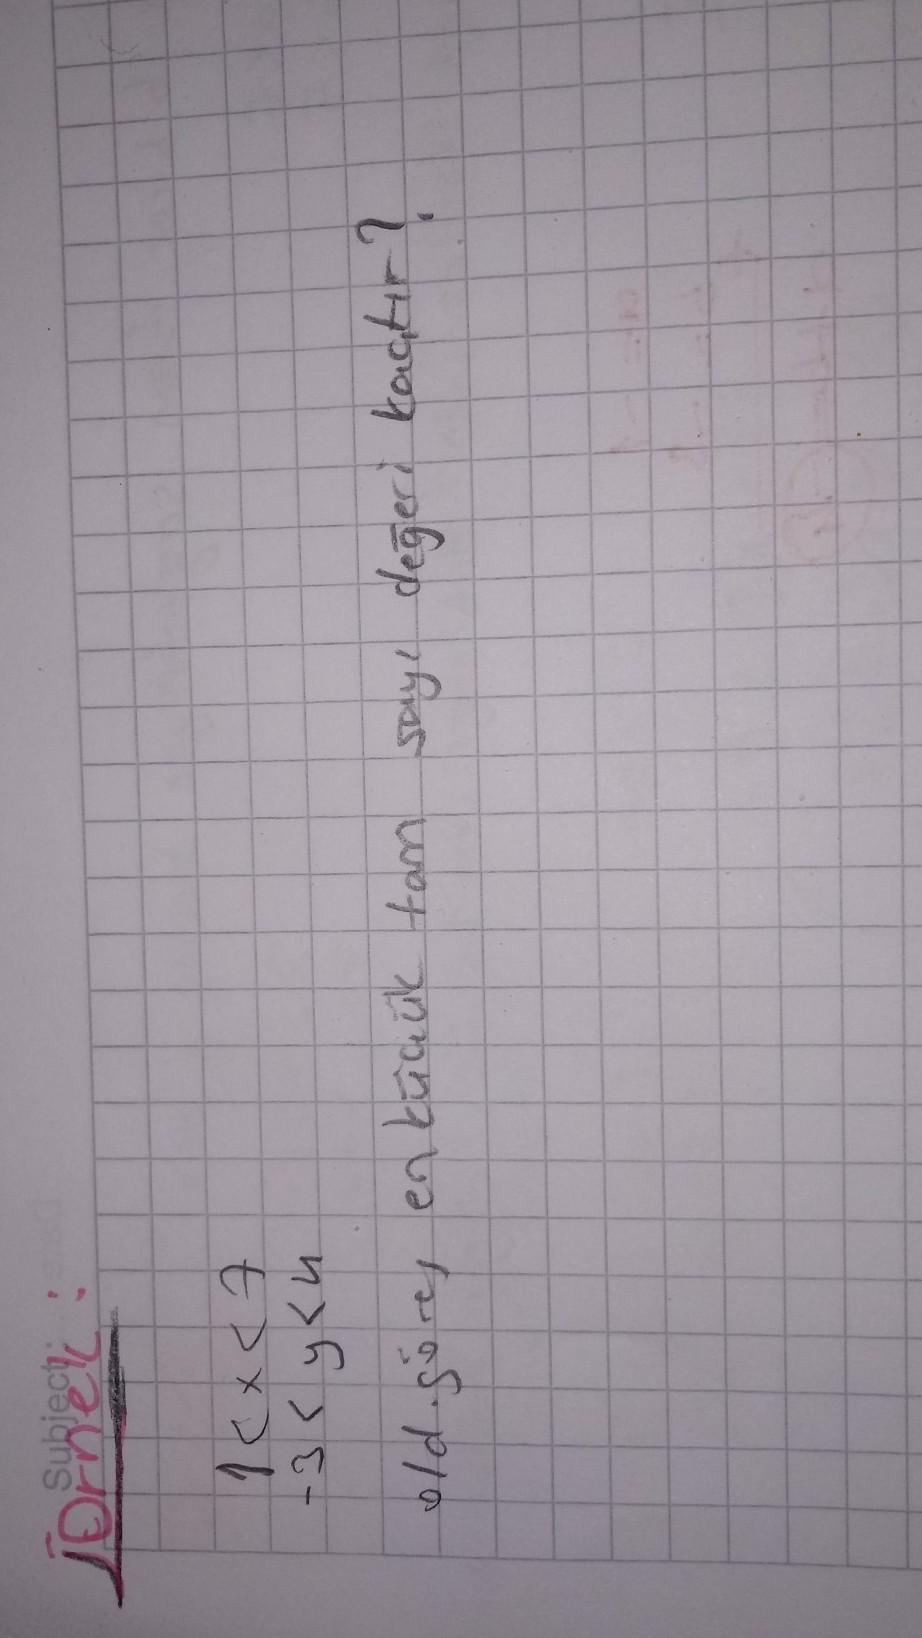 Subject:
Örnek:
1<x<7
-3<y<4
old.göre, en küçük tam sayı değeri kaçtır?